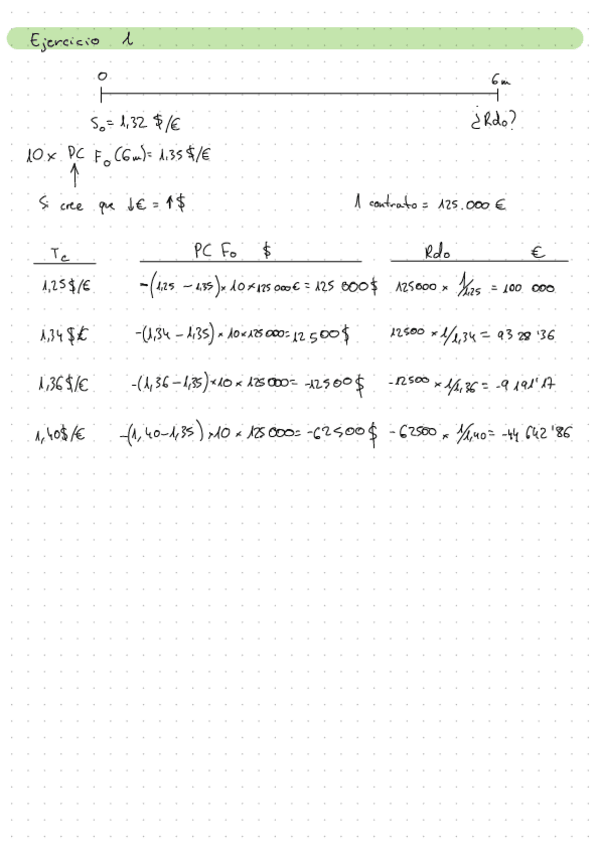 Ejercicio 1
0 6m
S₀ = 1,32 $/€ ¿Rdo?
10 x PC F₀ (6m) = 1,35 $/€
↑
Si cree que ↓€ = ↑$ 1 contrato = 125.000 €
Tc PC F₀ $ Rdo €
1,25$/€ -(1,25 - 1,35) x 10 x 125 000€ = 125 000$ 125000 x 1/1,25 = 100 000
1,34$/€ -(1,34 - 1,35) x 10 x 125 000 = 12 500$ 12500 x 1/1,34 = 93 28'36
1,36$/€ -(1,36 - 1,35) x 10 x 125000 = -12500$ -12500 x 1/1,36 = -9 191'17
1,40$/€ -(1,40-1,35) x 10 x 125 000 = -62500$ -62500 x 1/1,40 = -44 642'86